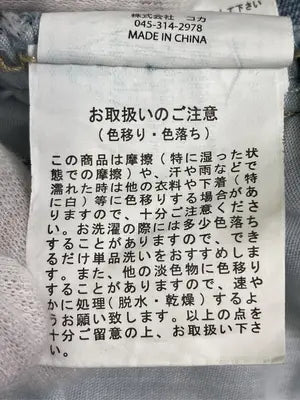 て下さい
株式会社 コカ
045-314-2978
MADE IN CHINA
お取扱いのご注意
(色移り・色落ち)
この商品は摩擦(特に湿った状
態での摩擦)や、汗や雨などで
濡れた時は他の衣料や下着(特
に白)等に色移りする場合があ
りますので、十分ご注意くださ
い。お洗濯の際には多少色落ち
することがありますので、でき
るだけ単品洗いをおすすめしま
す。また、他の淡色物に色移り
することがありますので、速や
かに処理(脱水・乾燥)するよ
うお願い致します。以上の点を
十分ご留意の上、お取扱い下さ
い。